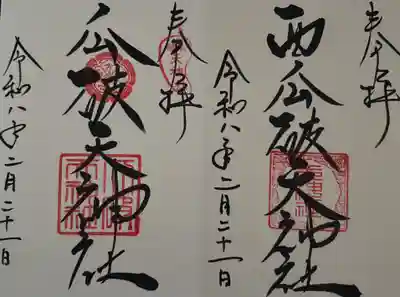 奉拝
西瓜破天神社
令和八年二月二十一日
奉拝
瓜破天神社
令和八年二月二十一日